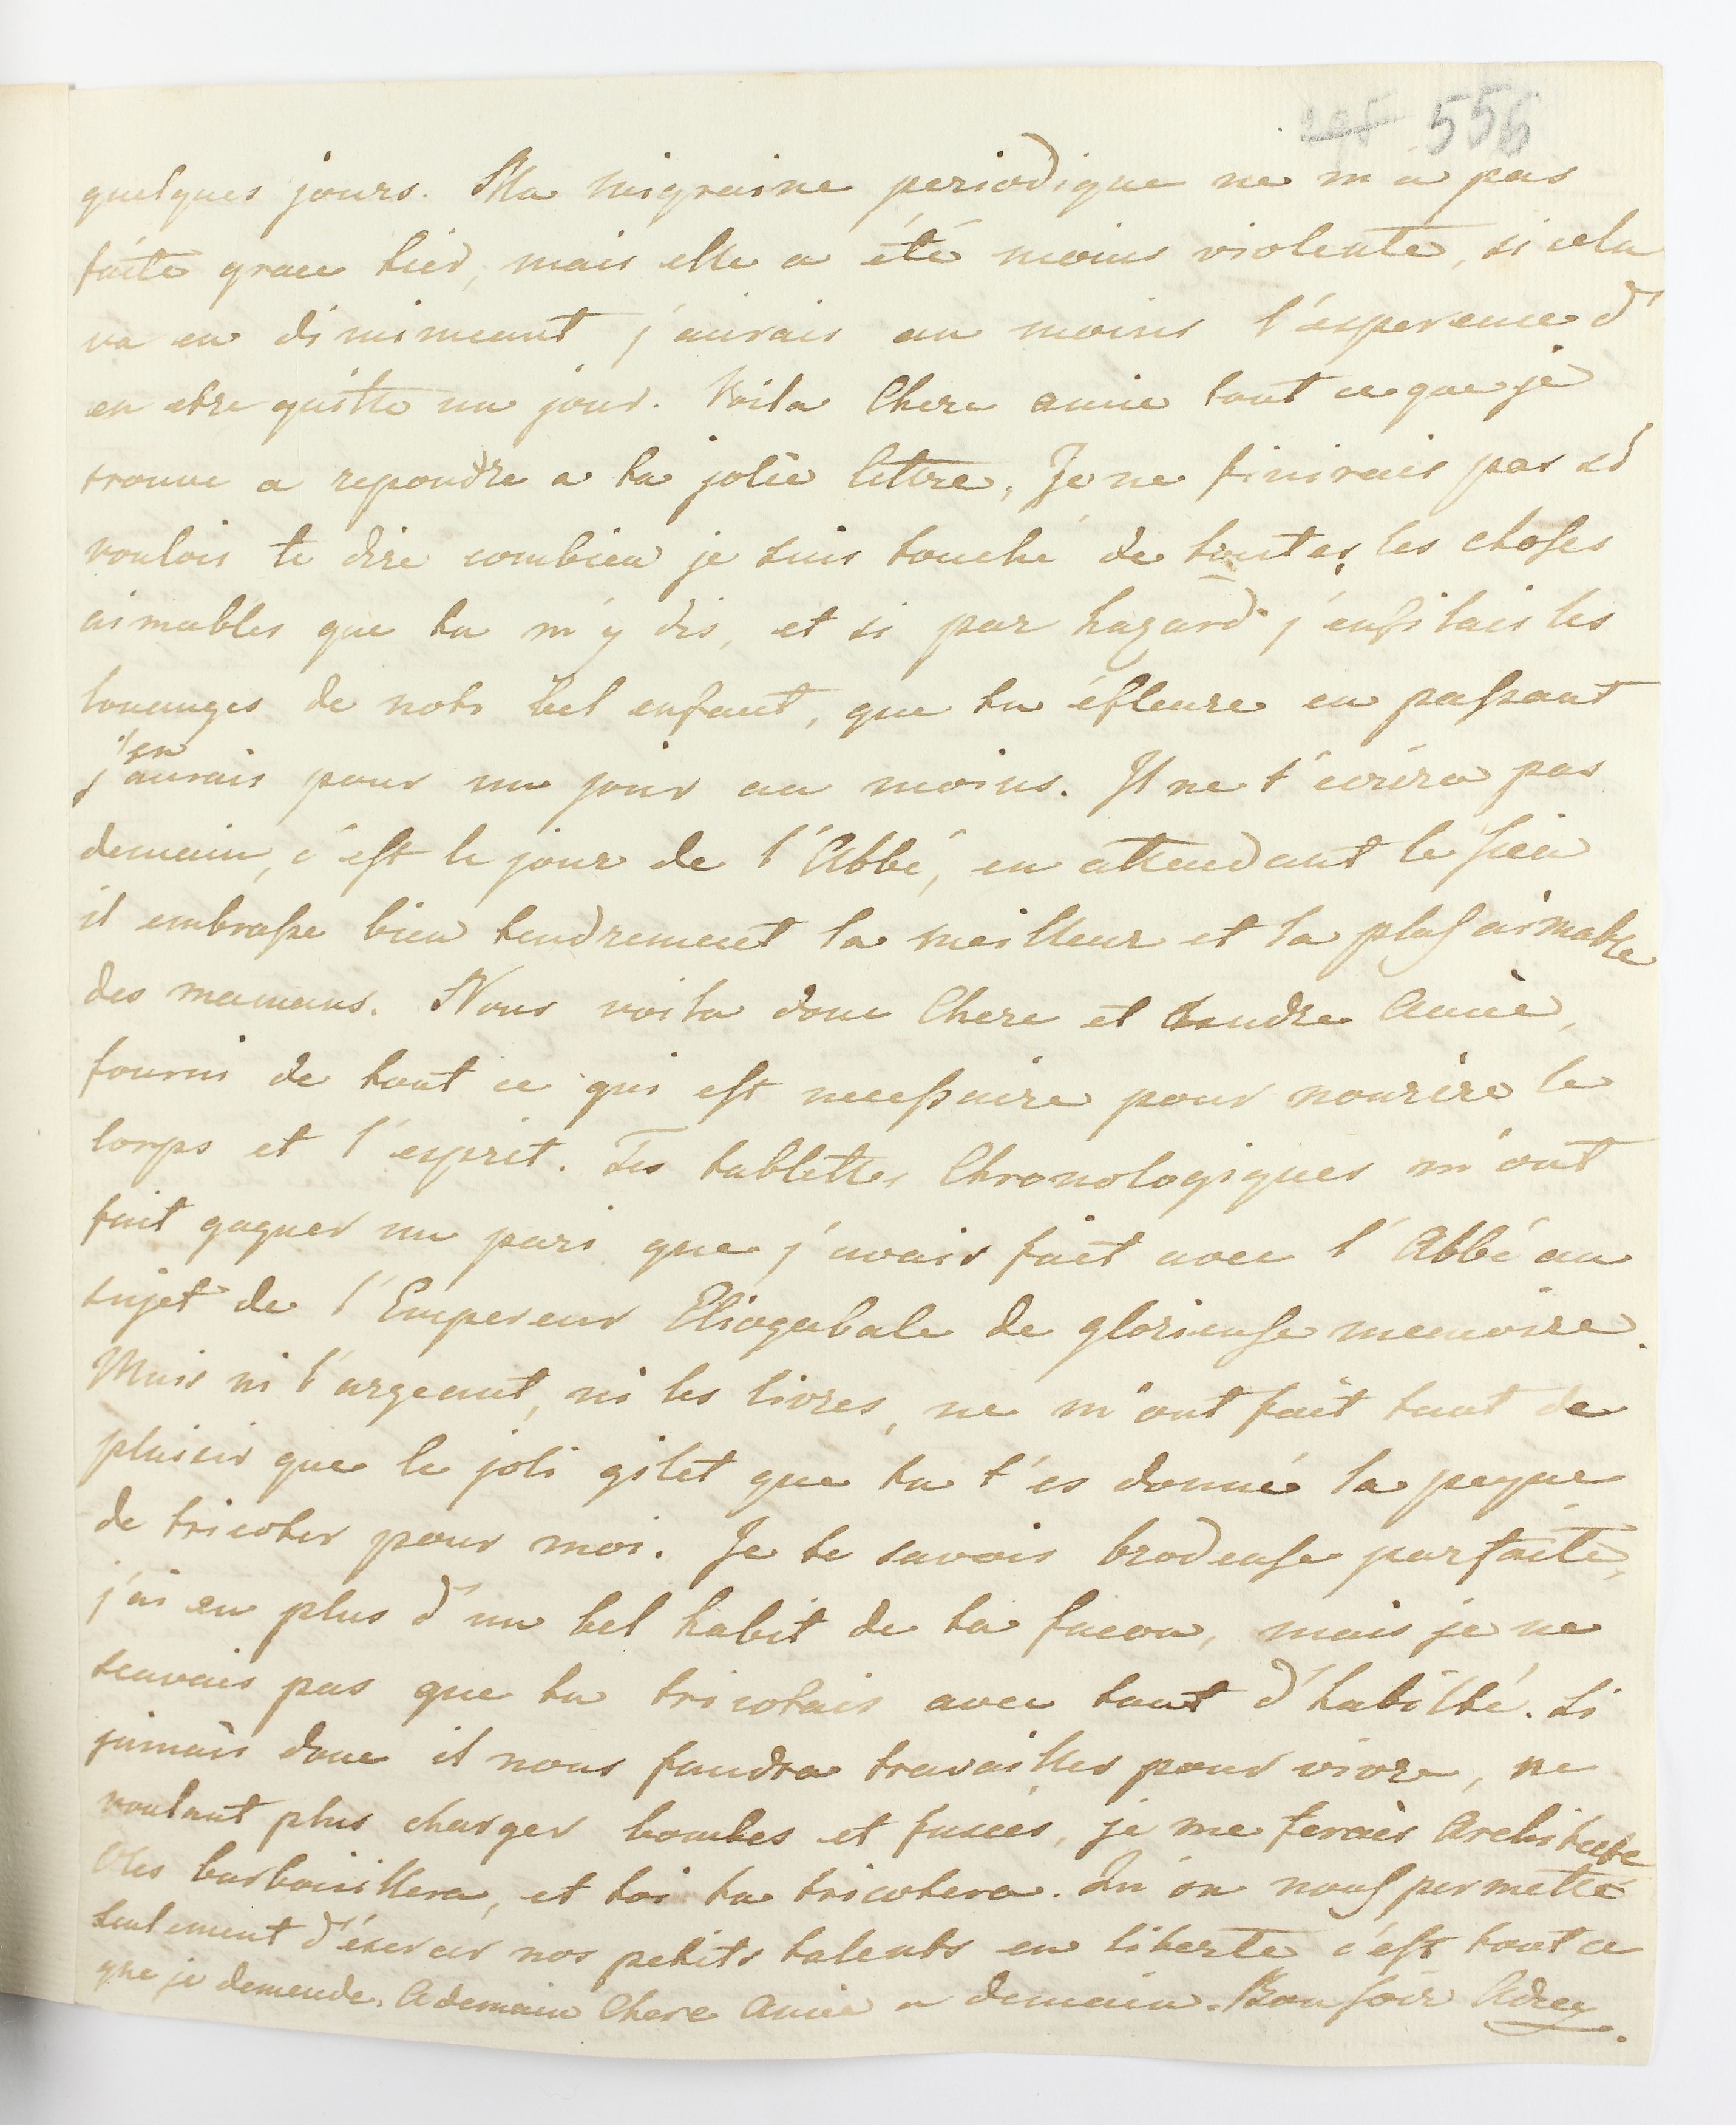 556
quelques jours. Ma migraine periodique ne m'a pas
faite grace hier, mais elle a été moins violente, si cela
va en diminuant j'aurais au moins l'esperence d'
en etre quitte un jour. Voila Chere amie tout ce que je
trouve a repondre a ta jolie lettre, Je ne finirais pas si
voulois te dire combien je suis touché de toutes les choses
aimables que tu m'y dis, et si par hazard j'enfilais les
louanges de notr bel enfant, que tu éfleure en passant
j'en aurais pour un jour au moins. Il ne t'écrira pas
demain, c'est le jour de l'Abbé, en attendant le sien
il embrasse bien tendrement la meilleur et la plus aimable
des mamans. Nous voila donc Chere et tendre Amie,
fourni de tout ce qui est necessaire pour nourire le
Corps et l'esprit. Tes tablettes Chronologiques m'ont
fait gagner un pari que j'avais fait avec l'Abbé au
sujet de l'Empereur Eliogabale de glorieuse memoire.
Mais ni l'argeant, ni les livres, ne m'ont fait tant de
plaisir que le joli gilet que tu t'es donné la peyne
de tricoter pour moi. Je te savois brodeuse parfaite,
j'ai eu plus d'un bel habit de ta facon, mais je ne
scavais pas que tu tricotais avec tant d'habilté. Si
jamais donc il nous faudra travailler pour vivre, ne
voulant plus charger bombes et fusées, je me ferais Architecte
Oles barbouillera, et toi tu tricotera. Qu'on nous permette
seulement d'éxercer nos petits talents en liberté c'est tout ce
que je demende. A demain Chere Amie a demain. Bon soir